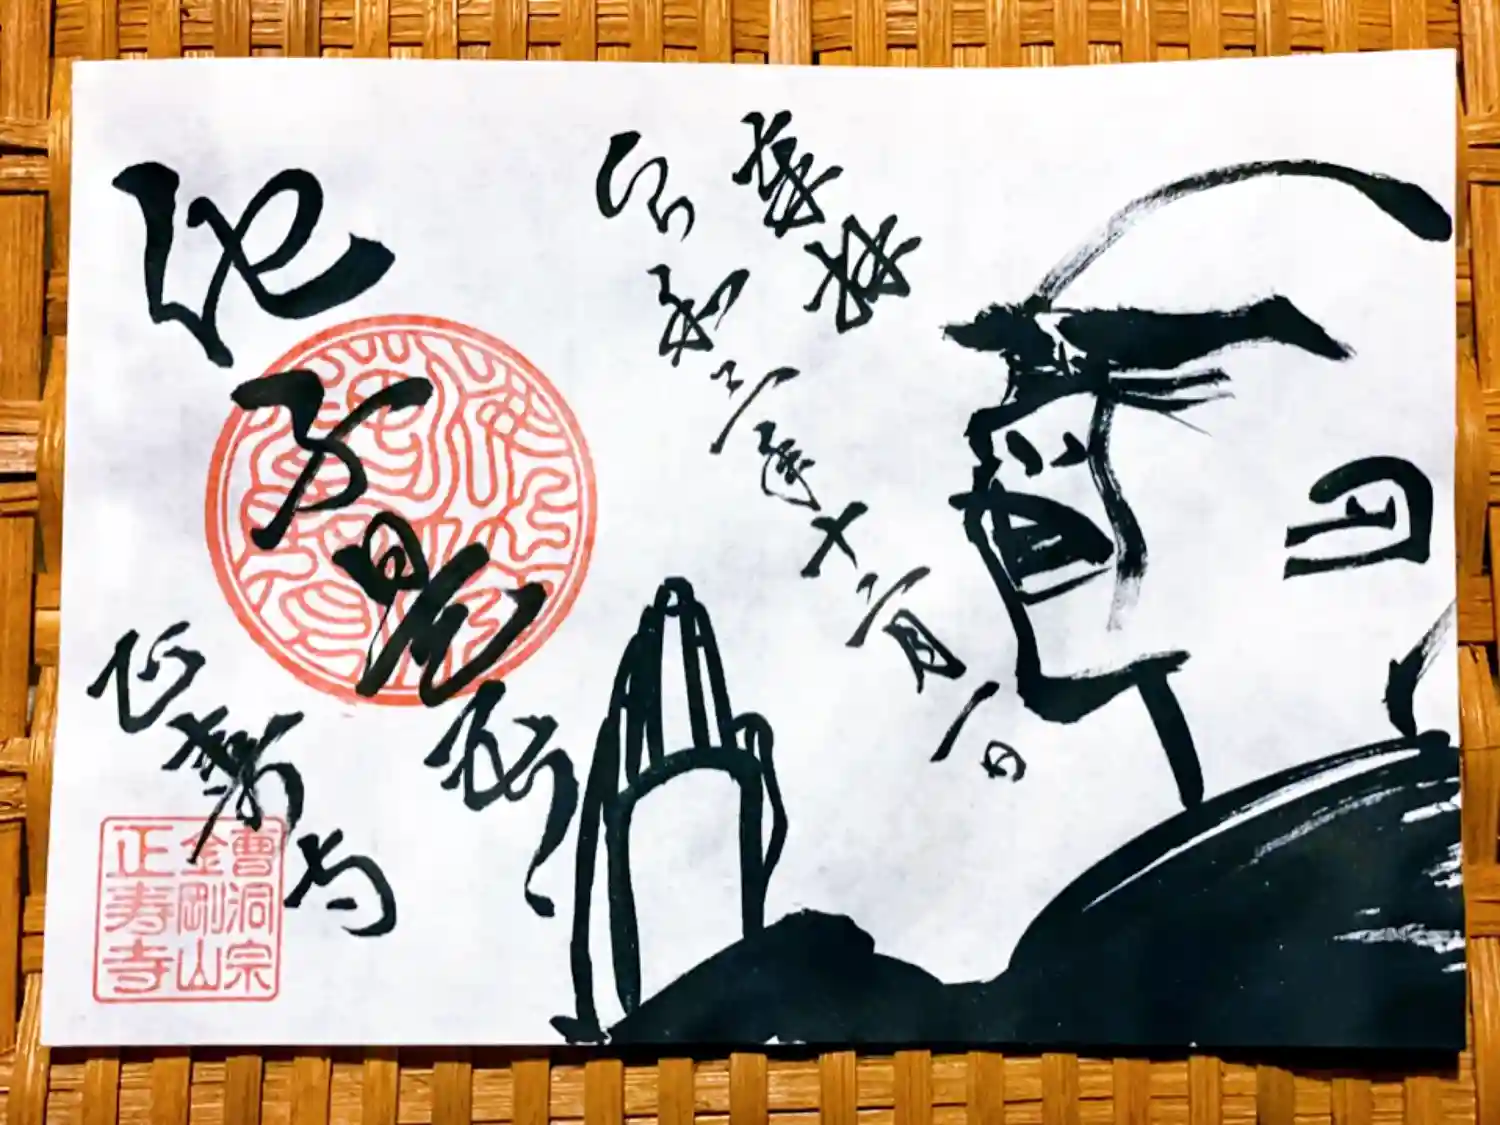 奉拝
令和三年十二月一日
他不是吾
正寿寺
曹洞宗
金剛山
正寿寺